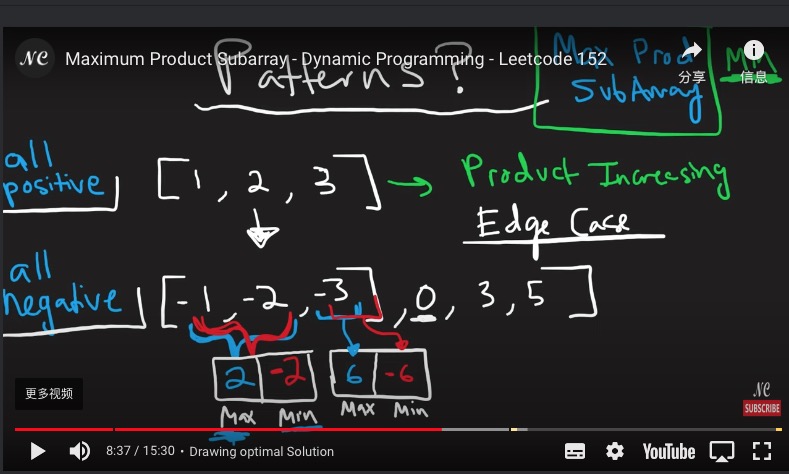 NC Maximum Product Subarray - Dynamic Programming - Leetcode 152
分享
信息
Patterns?
Max Prod
SubArray
all
positive
[1, 2, 3] → Product Increasing
Edge Case
all
negative
[-1, -2, -3], 0, 3, 5]
2 -2 6 -6
Max Min Max Min
更多视频
NC
SUBSCRIBE
8:37 / 15:30 • Drawing optimal Solution
YouTube